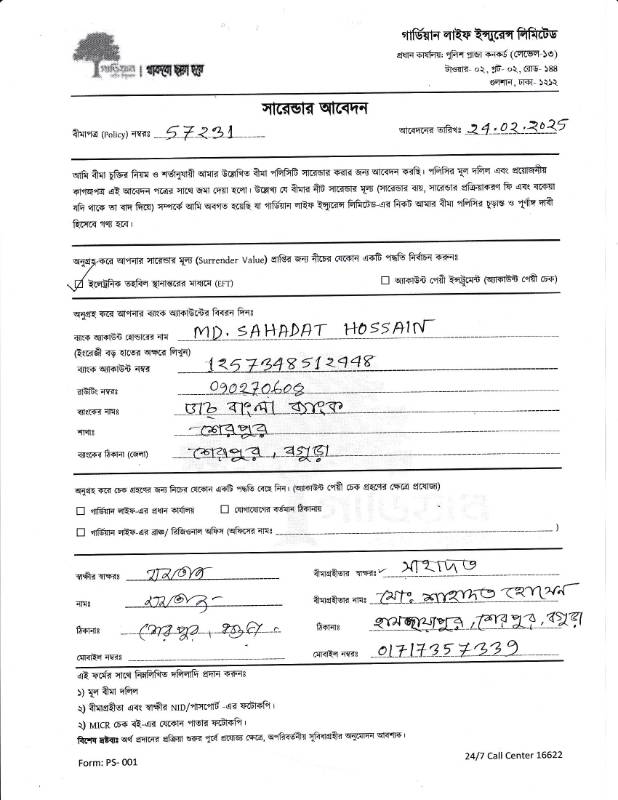 গার্ডিয়ান লাইফ ইন্স্যুরেন্স লিমিটেড
প্রধান কার্যালয়: পুলিশ প্লাজা কনকর্ড (লেভেল-১৩)
টাওয়ার- ০২, প্লট- ০২, রোড- ১৪৪
গুলশান, ঢাকা- ১২১২
গার্ডিয়ান
সারেন্ডার আবেদন
বীমাপত্র (Policy) নম্বরঃ 57231 আবেদনের তারিখঃ 24.02.2025
আমি বীমা চুক্তির নিয়ম ও শর্তানুযায়ী আমার উল্লেখিত বীমা পলিসিটি সারেন্ডার করার জন্য আবেদন করছি। পলিসির মূল দলিল এবং প্রয়োজনীয়
কাগজপত্র এই আবেদন পত্রের সাথে জমা দেয়া হলো। উল্লেখ্য যে বীমার নীট সারেন্ডার মূল্য (সারেন্ডার ব্যয়, সারেন্ডার প্রক্রিয়াকরণ ফি এবং বকেয়া
যদি থাকে তা বাদ দিয়ে) সম্পর্কে আমি অবগত হয়েছি যা গার্ডিয়ান লাইফ ইন্স্যুরেন্স লিমিটেড-এর নিকট আমার বীমা পলিসির চূড়ান্ত ও পূর্ণাঙ্গ দাবী
হিসেবে গণ্য হবে।
অনুগ্রহ করে আপনার সারেন্ডার মূল্য (Surrender Value) প্রাপ্তির জন্য নীচের যেকোন একটি পদ্ধতি নির্বাচন করুনঃ
ইলেক্ট্রনিক তহবিল স্থানান্তরের মাধ্যমে (EFT) অ্যাকাউন্ট পেয়ী ইন্সট্রুমেন্ট (অ্যাকাউন্ট পেয়ী চেক)
অনুগ্রহ করে আপনার ব্যাংক অ্যাকাউন্টের বিবরন দিনঃ
ব্যাংক অ্যাকাউন্ট হোল্ডারের নাম MD. SAHADAT HOSSAIN
(ইংরেজী বড় হাতের অক্ষরে লিখুন)
ব্যাংক অ্যাকাউন্ট নম্বর 1257348512448
রাউটিং নম্বরঃ 090270608
ব্যাংকের নামঃ ডাচ্ বাংলা ব্যাংক
শাখাঃ শেরপুর
ব্যাংকের ঠিকানা (জেলা) শেরপুর, বগুড়া
অনুগ্রহ করে চেক গ্রহণের জন্য নিচের যেকোন একটি পদ্ধতি বেছে নিন। (অ্যাকাউন্ট পেয়ী চেক গ্রহণের ক্ষেত্রে প্রযোজ্য)
গার্ডিয়ান লাইফ-এর প্রধান কার্যালয় যোগাযোগের বর্তমান ঠিকানায়
গার্ডিয়ান লাইফ-এর ব্রাঞ্চ/ রিজিওনাল অফিস (অফিসের নামঃ )
স্বাক্ষীর স্বাক্ষরঃ বীমাগ্রহীতার স্বাক্ষরঃ সাহাদত
নামঃ বীমাগ্রহীতার নামঃ মোঃ শাহাদত হোসেন
ঠিকানাঃ শেরপুর, বগুড়া। ঠিকানাঃ হামছায়াপুর, শেরপুর, বগুড়া
মোবাইল নম্বরঃ মোবাইল নম্বরঃ 01717357339
এই ফর্মের সাথে নিম্নলিখিত দলিলাদি প্রদান করুনঃ
১) মূল বীমা দলিল
২) বীমাগ্রহীতা এবং স্বাক্ষীর NID/পাসপোর্ট -এর ফটোকপি।
২) MICR চেক বই-এর যেকোন পাতার ফটোকপি।
বিশেষ দ্রষ্টব্যঃ অর্থ প্রদানের প্রক্রিয়া শুরুর পূর্বে প্রযোজ্য ক্ষেত্রে, অপরিবর্তনীয় সুবিধাগ্রহীর অনুমোদন আবশ্যক।
Form: PS- 001 24/7 Call Center 16622